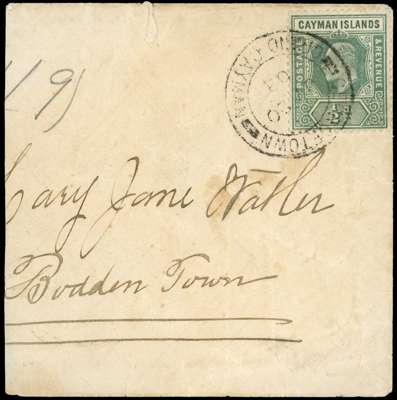 CAYMAN ISLANDS
POSTAGE & REVENUE
GRAND CAYMAN
TOWN
19)
Mary Jane Watler
Bodden Town